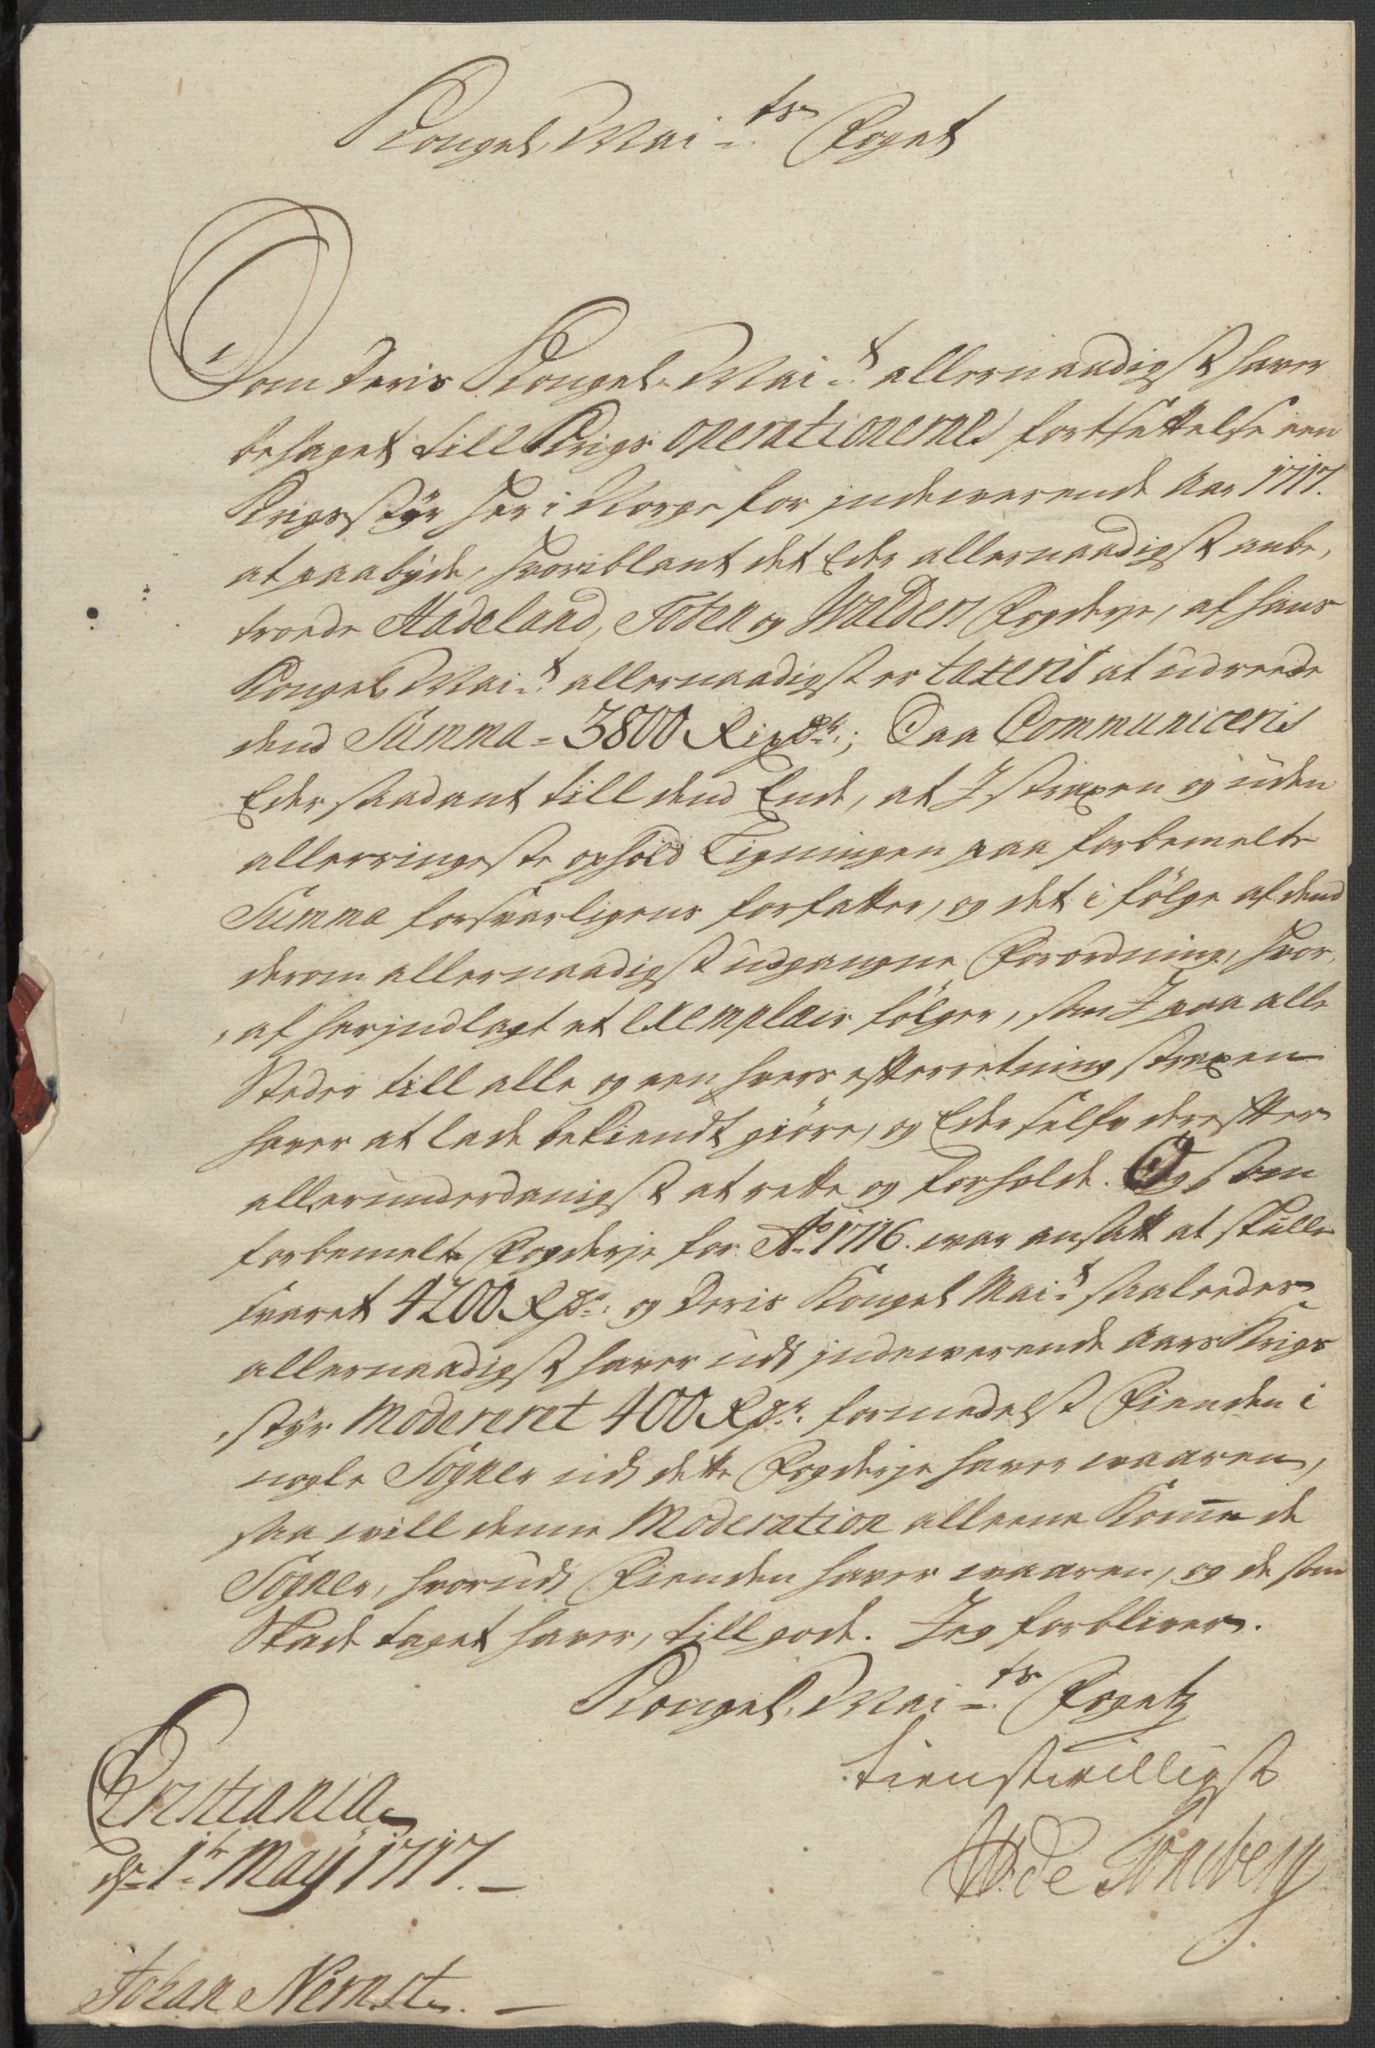 Kongel. Mai.ts Foget
Som Deris Kongel. Mai.t allernaadigst haver
behaget till Krigs operationernes fortsættelse een
Krigsstyr her i Norge for indeværende Aar 1717.
at paabyde, hvoriblant det Eder allernaadigst anbe,
troede Hadeland, Toten og Walders Fogderje, af hans
Kongel Mai.t allernaadigst er taxerit at udreede
dend Summa - 3800 Rixdr.; Daa Communiceris
Eder saadant till dend Ende, at I strapen og uden
allerringeste ophold Ligningen paa forbemelte
Summa forsvarligens forfatter, og det i følge af dend
derom allernaadigst udgangne Forordning, hvor,
,af herjndlagt et Exemplair følger, som I paa alle
Steder till alle og een hvers efterretning strapen
haver at lade bekiendtgiøre, og Eder selfv derefter
allerunderdanigst at rette og forholde. Og som
forbemelte Fogderje for Ao 1716. war ansatt at skulle
svaret 4200 Rdr: og Deris Kongel Mai.t saaleedes
allernaadigst haver udj indeværende Aars Krigs
,styr Modereret 400 Rdr. formedelst Fienden i
nogle Sogner udj dette Fogderje haver waaren,
saa will denne Moderation alleene Komme de
Sogner, hvorudj Fienden haver waaren, og de som
Skade taget haver, till gode. Jeg forbliver.
Kongel. Mai.ts Fogetz
tienstwilligst
W. de Tonsberg
Cristiania
d. 1t May 1717.
Johan Nernst.